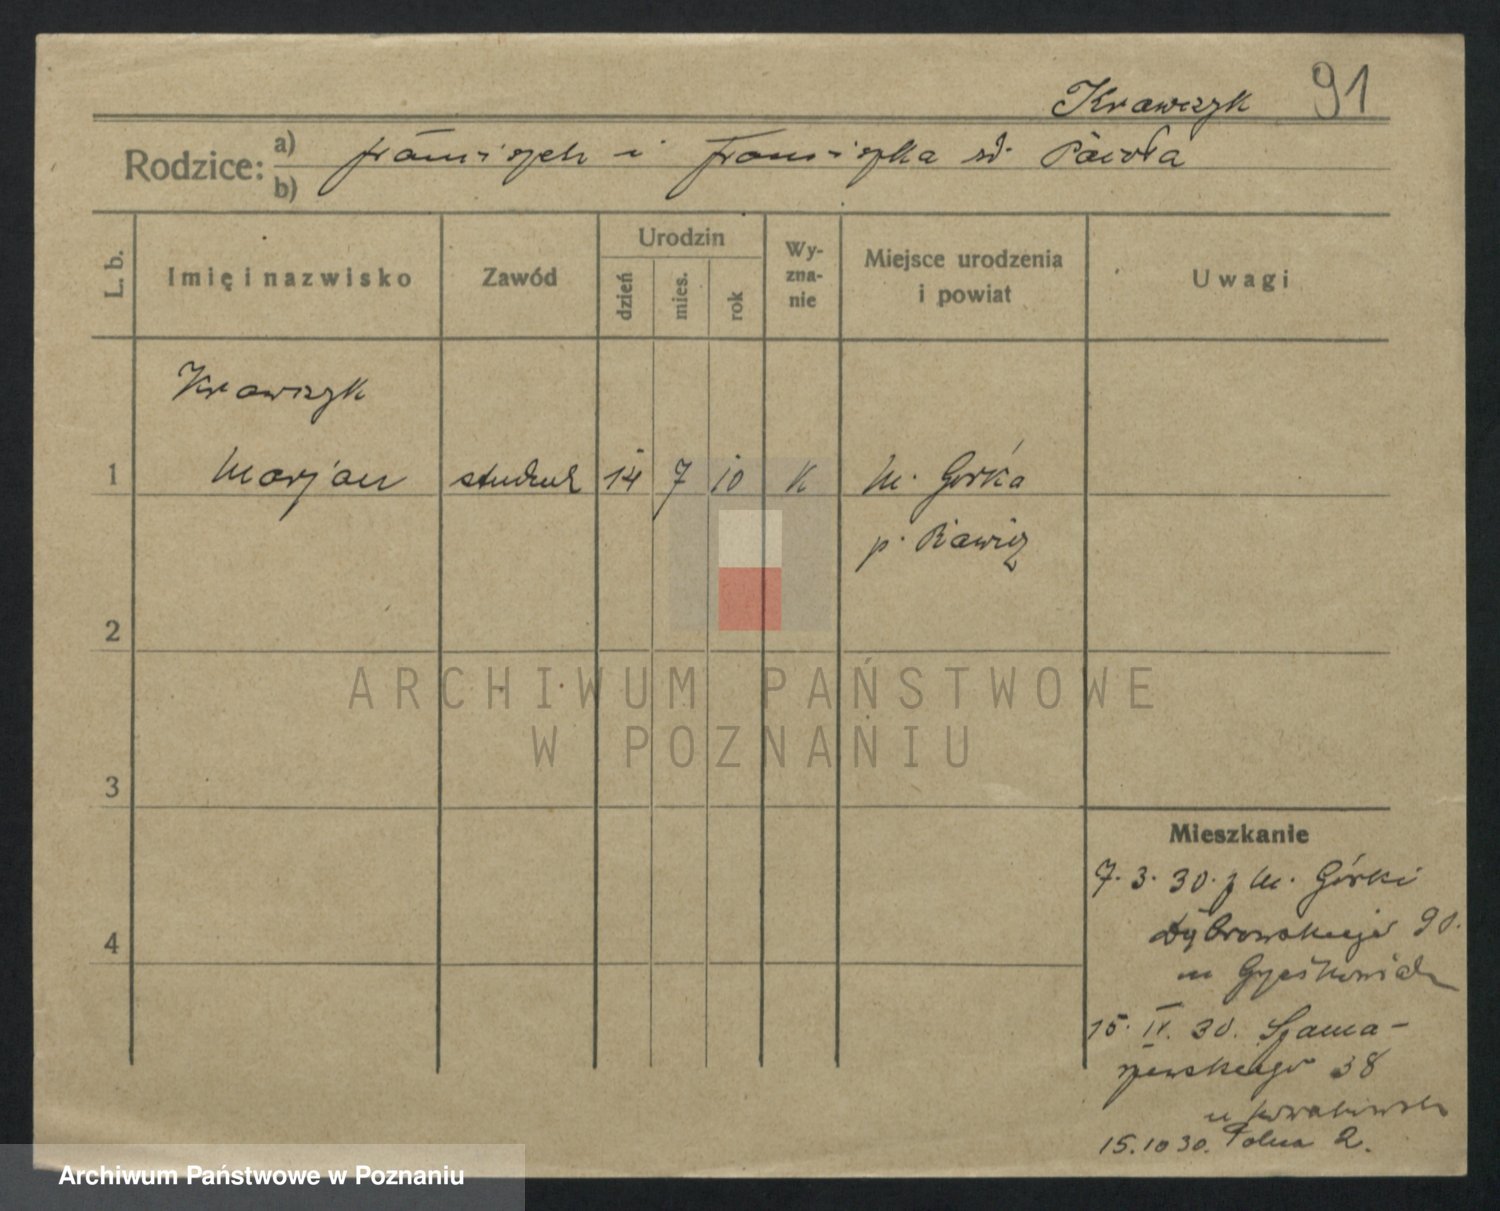 Krawczyk 91
Rodzice: a) Franciszek i Franciszka zd. Pawła
b)
L. b. Imię i nazwisko Zawód Urodzin dzień mies. rok Wy-zna-nie Miejsce urodzenia i powiat Uwagi
Krawczyk
1 Marjan student 14 7 10 K M. Górka
p. Rawicz
2
ARCHIWUM PAŃSTWOWE
W POZNANIU
3
Mieszkanie
7. 3. 30. z M. Górki
Dąbrowskiego 90.
4
15. IV. 30. Szama-
rzewskiego 38
15.10 30. Polna 2.
Archiwum Państwowe w Poznaniu